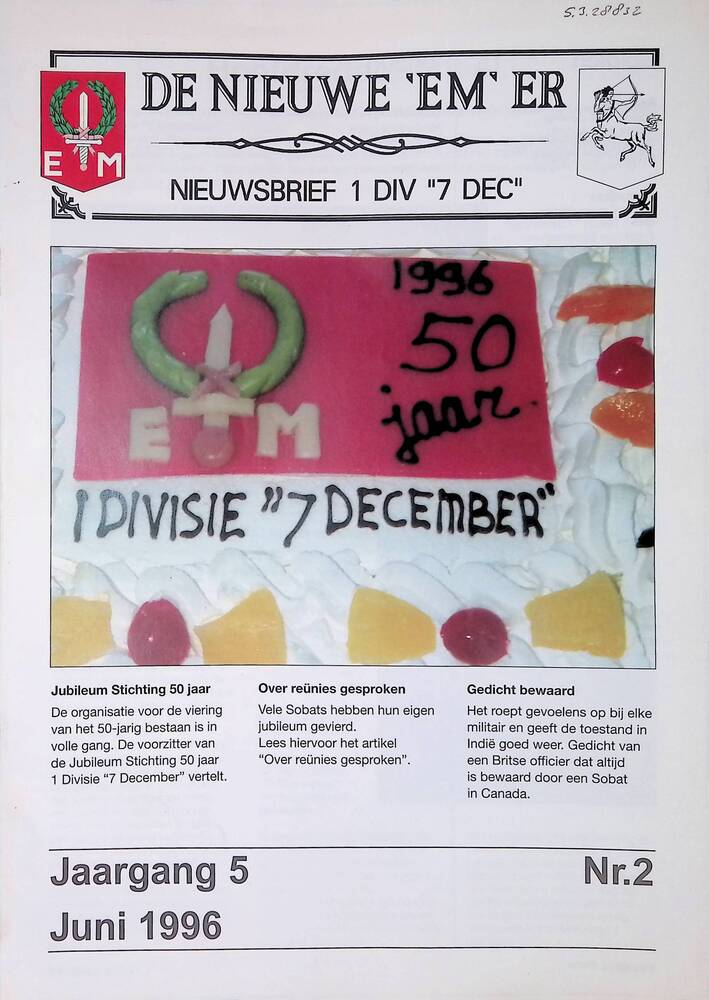 5.3.28832
DE NIEUWE 'EM' ER
E M
NIEUWSBRIEF 1 DIV "7 DEC"
1996
50
jaar.
E M
1 DIVISIE "7 DECEMBER"
Jubileum Stichting 50 jaar
De organisatie voor de viering
van het 50-jarig bestaan is in
volle gang. De voorzitter van
de Jubileum Stichting 50 jaar
1 Divisie “7 December” vertelt.
Over reünies gesproken
Vele Sobats hebben hun eigen
jubileum gevierd.
Lees hiervoor het artikel
“Over reünies gesproken”.
Gedicht bewaard
Het roept gevoelens op bij elke
militair en geeft de toestand in
Indië goed weer. Gedicht van
een Britse officier dat altijd
is bewaard door een Sobat
in Canada.
Jaargang 5
Nr.2
Juni 1996